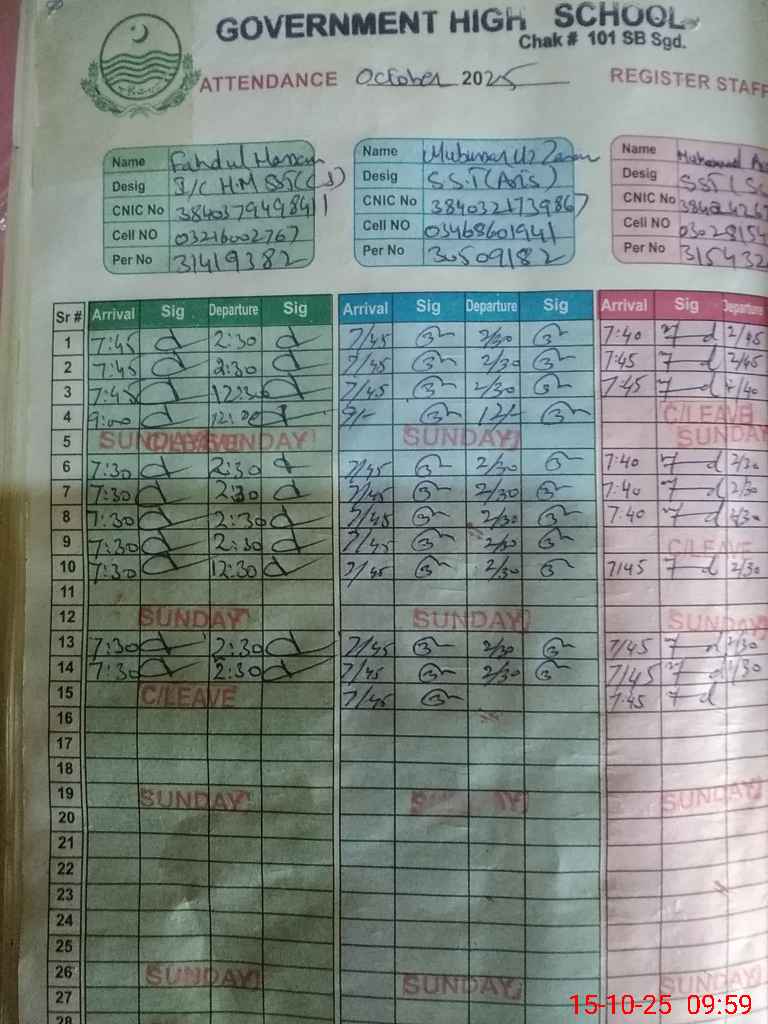 GOVERNMENT HIGH SCHOOL
Chak # 101 SB Sgd.
ATTENDANCE October 2025 REGISTER STAFF
Name Fahdul Hassan
Desig I/C H.M SST(CS)
CNIC No 3840379498411
Cell NO 03216002767
Per No 31419382
Name Mubassar Uz Zaman
Desig S.S.T(Arts)
CNIC No 3840321739867
Cell NO 03468601941
Per No 30509182
Name Muhammad
Desig SST (Sc
CNIC No
Cell NO 0302815
Per No 315432
Sr # Arrival Sig Departure Sig Arrival Sig Departure Sig Arrival Sig Departure
1 7:45 2:30 7/45 2/30 7:40 2/45
2 7:45 2:30 7/45 2/30 7:45 2/45
3 7:45 12:30 7/45 2/30 7:45 /40
4 9:00 12:00 9/- 12/- C/LEAVE
5 SUNDAY SUNDAY SUNDAY SUNDAY
6 7:30 2:30 7/45 2/30 7:40 2/30
7 7:30 2:30 7/45 2/30 7:40 2/30
8 7:30 2:30 7/45 2/30 7:40 2/30
9 7:30 2:30 7/45 2/30 C/LEAVE
10 7:30 12:30 7/45 2/30 7/45 2/30
11
12 SUNDAY SUNDAY SUNDAY
13 7:30 2:30 7/45 2/30 7/45 2/30
14 7:30 2:30 7/45 2/30 7/45 2/30
15 C/LEAVE 7/45 7:45
16
17
18
19 SUNDAY SUNDAY
20
21
22
23
24
25
26 SUNDAY SUNDAY SUNDAY
27
28
15-10-25 09:59